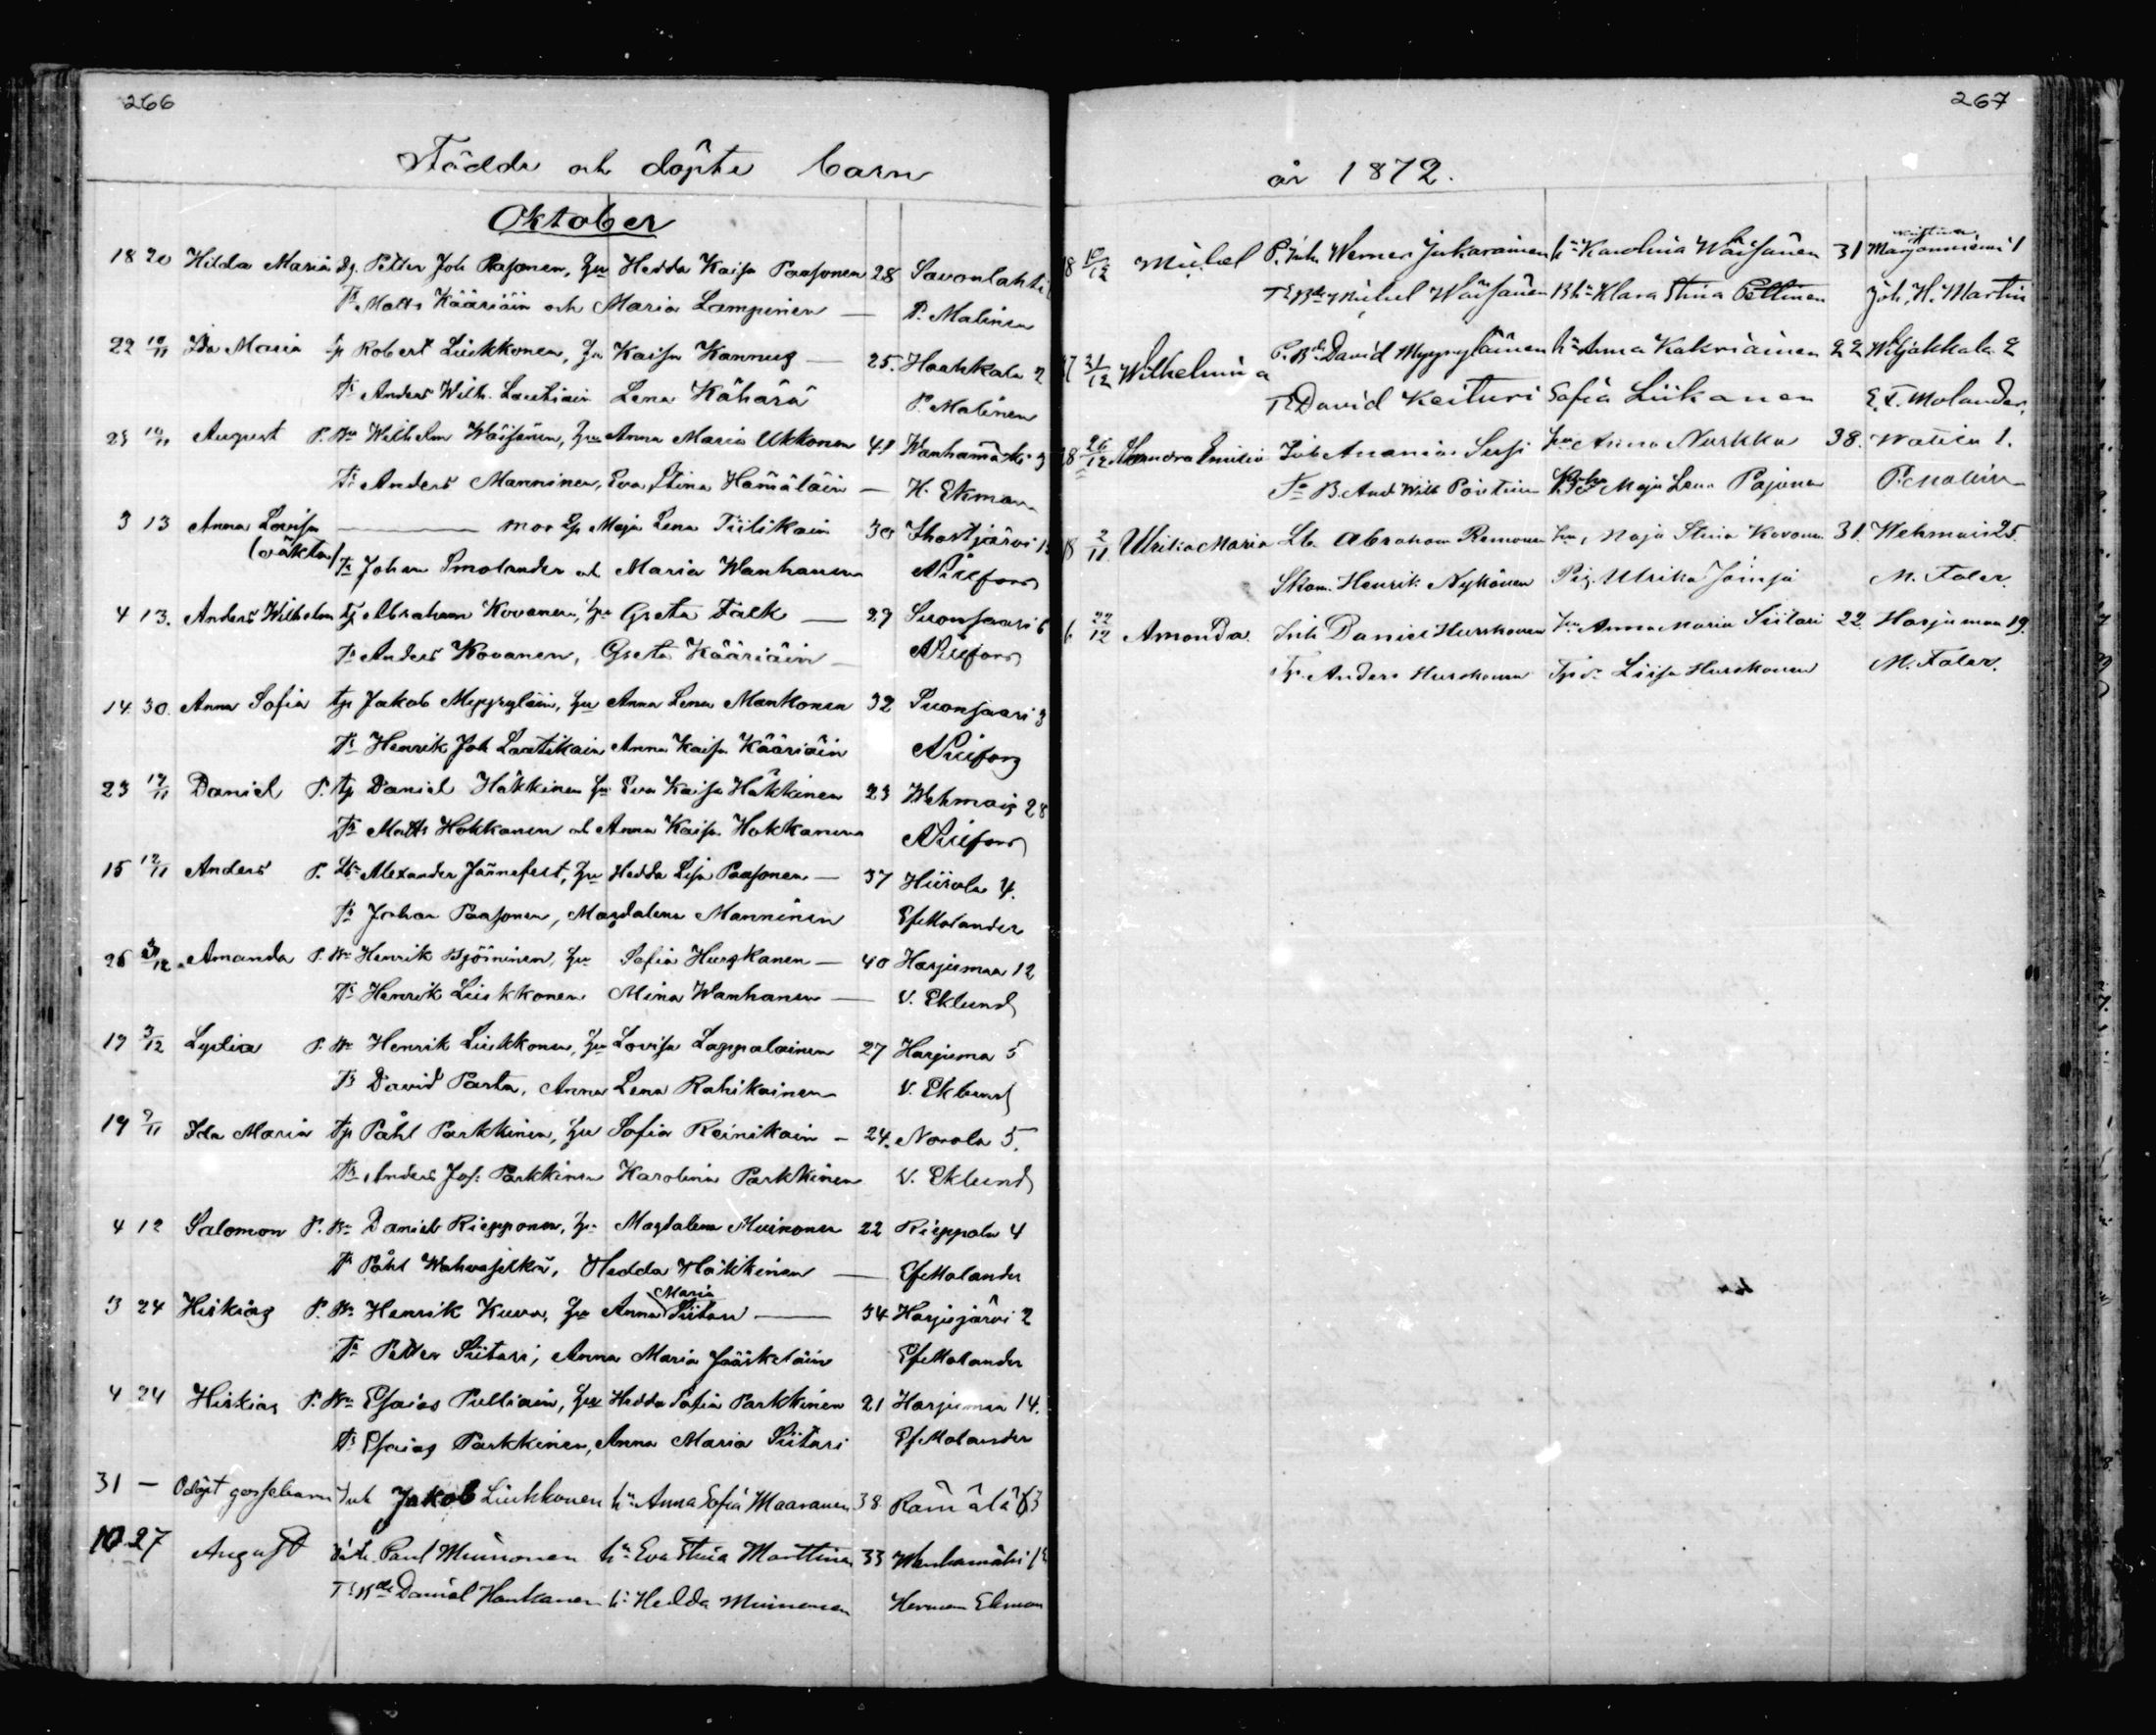 266
Födde och döpte barn
Oktober
18 20 Hilda Maria Dg. Petter Joh Paasonen, Hu Hedda Kaisa Paasonen 28 Savonlahti
Ts Matts Kääriäin och Maria Lampinen — P. Malinen
22 10/11 Ida Maria Robert Liukkonen, Hu Kaisa Kannus — 25. Haahkala 2
Ts Anders Wilh. Lautiain Lena Kähärä P. Malinen
25 10/11 August P. Bn Wilhelm Wäisänen, Hu Anna Maria Ukkonen 41 Wanhamäki 3
Ts Anders Manninen, Eva Stina Hämäläin — H. Ekman
3 13 Anna Lovisa — mor Maja Lena Tiilikain 30
(oäkta) Ts Johan Smolander och Maria Wanhanen
4 13. Anders Wilhelm tp Abraham Kovanen, Hu Greta Falk — 27 Suonsaari 6
Ts Anders Kovanen, Greta Kääriäin —
14. 30. Anna Sofia tp Jakob Myyryläin, Hu Anna Lena Monkonen 32 Suonsaari 3
Ts Henrik Joh Lautikain Anna Kaisa Kääriäin
23 17/11 Daniel P. tp Daniel Häkkinen Hu Eva Kaisa Häkkinen 23 Wehmais 28
Ts Matts Hokkanen och Anna Kaisa Hokkanen
15 17/11 Anders P. Lbn Alexander Järnefelt, Hu Hedda Lisa Paasonen — 37 Hiirola 4.
Ts Johan Paasonen, Magdalena Manninen Ef Molander
26 3/12 Amanda P. Bn Henrik Björninen, Hu Sofia Hurskanen — 40 Harjumaa 12
Ts Henrik Liukkonen Mina Wanhanen — V. Eklund
19 3/12 Lydia P. Bn Henrik Liukkonen, Hu Lovisa Lappalainen 27 Harjuma 5
Ts David Parta, Anna Lena Rahikainen V. Eklund
19 9/11 Ida Maria tp Påhl Parkkinen, Hu Sofia Reinikain — 24. Norola 5.
Ts Anders Jos. Parkkinen Karolina Parkkinen V. Eklund
4 12 Salomon P. Bn Daniel Riepponen, Hu Magdalena Muinonen 22 Rieppola 4
Ts Påhl Wahvaselkä, Hedda Häkkinen — Ef Molander
3 24 Hiskias P. Bn Henrik Kuva, Hu Anna Maria Siitari — 34 Harjujärvi 2
Ts Petter Siitari, Anna Maria Jääskeläin Ef Molander
4 24 Hiskias P. Bn Esaias Pulliain, Hu Hedda Sofia Parkkinen 21 Harjumaa 14.
Ts Esaias Parkkinen, Anna Maria Siitari Ef Molander
31 — Odöpt gossebarn Inh Jakob Liukkonen hu Anna Sofia Maaranen 38 Rämälä 3
10 27 August Paul Muinonen hu Eva Stina Marttinen 33 Wanhamäki
Ts Daniel Haukanen hu Hedda Muinonen Herman Ekman
267
år 1872.
18 10/12 Mickel P. Inh. Werner Jukarainen hu Karolina Wäisänen 31 Marjoniemi 1
Ts Mickel Wäisänen Klara Stina Peltinen Joh. H. Martin
21/12 Wilhelmina P. Bd David Myyryläinen hu Anna Kakriainen 22 Wiljakkala 2
Ts David Keituri Sofia Liikanen E. F. Molander,
18 26/12 Emilia Inh Anania Sersi Anna Nurkka 38. Watila 1.
Ts B. And. Wilh Pöntinen Maja Lena Pajunen P. Malin
18 2/11 Ulrika Maria Lb. Abraham Remonen hu, Maja Stina Kovanen 31. Wehmais 25.
Henrik Nykänen Pig. Ulrika M. Faler.
6 22/12 Amanda. Inh Daniel Hurskonen hu Anna Maria Siitari 22. Harjumaa 19.
Anders Hurskonen Liisa Hurskonen M. Faler.